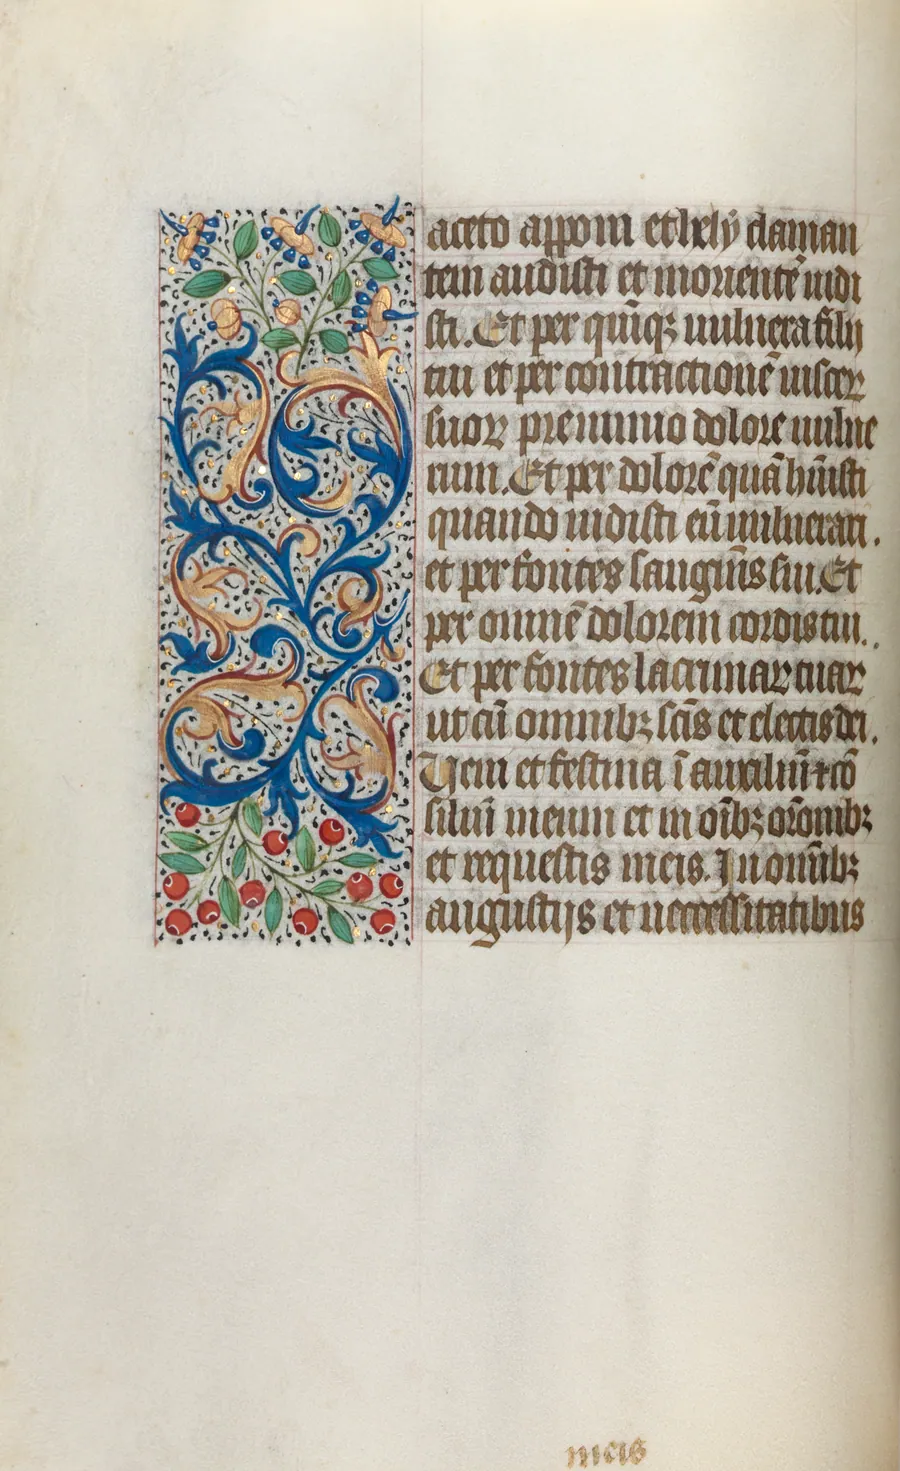 aceto apponi et hely claman
tem audisti et moriente̅ uidi
sti. Et per qui̅qꝫ uulnera filij
tui et per contractione̅ uisceꝝ
suoꝝ pre nimio dolore uulne
rum. Et per dolore̅ qua̅ hu̅isti
quando uidisti eu̅ uulnerari.
et per fontes sangui̅s sui. Et
per omne̅ dolorem cordis tui.
Et per fontes lacrimaꝝ tuaꝝ
ut cu̅ omnibꝫ sc̅is et electis dei.
Veni et festina i̅ auxiliu̅ ⁊ co̅
siliu̅ meum et in oi̅bꝫ oro̅nibꝫ
et requestis meis. In omi̅bꝫ
angustijs et necessitatibus
meis